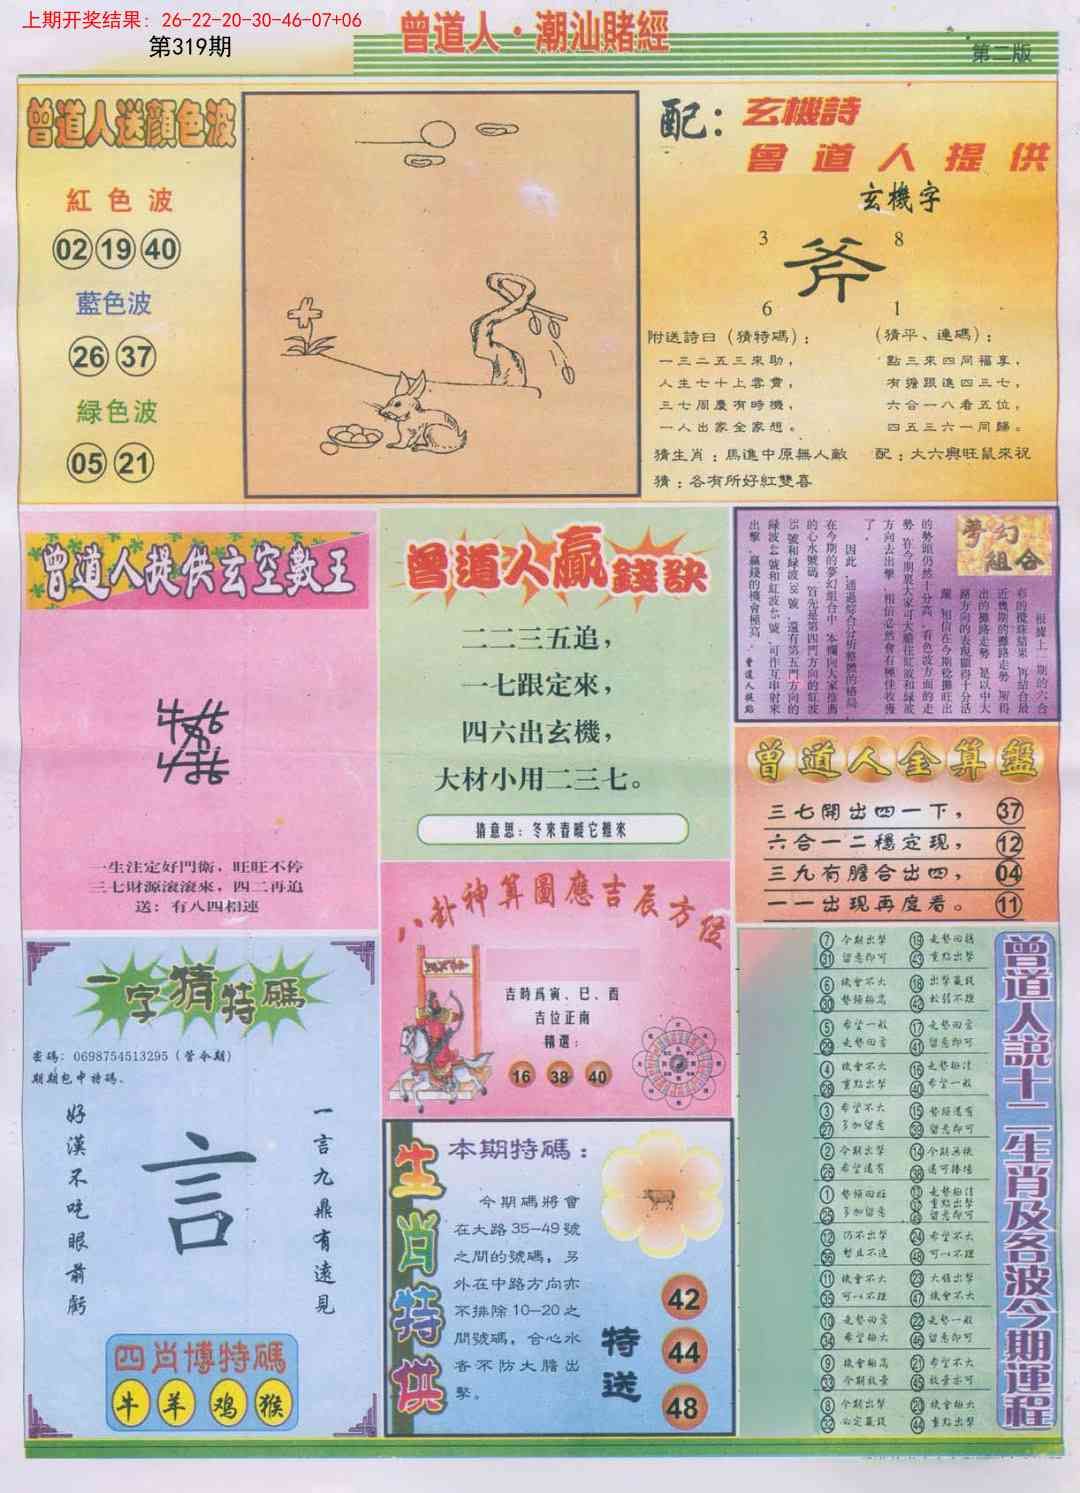 上期开奖结果: 26-22-20-30-46-07+06
第319期
曾道人·潮汕賭經
第二版
曾道人送顏色波
紅色波
02 19 40
藍色波
26 37
緑色波
05 21
配：玄機詩
曾道人提供
玄機字
3 8
斧
6 1
附送詩曰（猜特碼）：
一三二五三來助，
人生七十上雲霄，
三七周慶有時機，
一人出家全家想。
猜生肖：馬進中原無人敵
猜：各有所好紅雙喜
（猜平、連碼）：
點三來四同福享，
有擔跟進四三七，
六合一八看五位，
四五三六一同歸。
配：大六興旺鼠來祝
曾道人提供玄空數王
一生注定好門衛，旺旺不停
三七財源滾滾來，四二再追
送：有八四相連
曾道人贏錢訣
二二三五追，
一七跟定來，
四六出玄機，
大材小用二三七。
猜意思：冬來春暖它推來
夢幻組合
根據上一期的六合
彩的攪珠結果，再結合最
近幾期的攤路走勢，期得
出的攤路走勢，是以中大
路方向的表現顯得十分活
躍，相信在今期稔攤旺出
的勢頭仍然十分高，看色波方面的走
勢，在今期裏大家可大膽往紅波和緑波
方向去出擊，相信必然會有極佳收獲
了。
因此，通過綜合分析整體的格局，
在今期的夢幻組合中，本欄向大家推薦
的心水號碼，首先是第四門方向的紅波
35號和緑波38號，還有第五門方向的
緑波44號和紅波45號，可作互串射來
出擊，贏錢的機會極高。曾道人提點
曾道人金算盤
三七開出四一下， 37
六合一二穩定現， 12
三九有膽合出四， 04
一一出現再度看。 11
八卦神算圖應吉辰方位
吉時爲寅、巳、酉
吉位正南
精選：
16 38 40
一字猜特碼
密碼：0698754513295（管令期）
期期包中特碼。
好漢不吃眼前虧
言
一言九鼎有遠見
四肖博特碼
牛 羊 鸡 猴
生肖特供
本期特碼：
今期碼將會
在大路35-49號
之間的號碼，另
外在中路方向亦
不排除10-20之
間號碼，合心水
者不防大膽出
擊。
特送
42
44
48
曾道人説十二生肖及各波今期運程
7 今期出擊 19 走勢回穩
31 留意即可 43 重點出擊
6 機會不大 18 出擊贏錢
30 勢頭極高 42 放弱不理
5 希望一般 17 走勢回音
29 走勢回音 41 留意即可
4 機會不大 16 走勢極佳
28 重點出擊 40 希望一般
3 希望不大 15 勢頭還有
27 多加留意 39 留意即可
2 今期出擊 14 今期無機
26 希望還有 38 還可捧場
1 勢頭回旺 13 走勢極佳
25 多加留意 37 重點出擊
49 留意即可
12 仍不出擊 24 希望不大
36 暫且不追 48 可以不理
11 機會不大 23 大膽出擊
35 可以不理 47 機會不大
10 走勢回音 22 走勢一般
34 希望極大 46 留意即可
9 機會極高 21 希望不大
33 今期放量 45 放量亦可
8 今期出擊 20 機會極大
32 必定贏錢 44 重點出擊